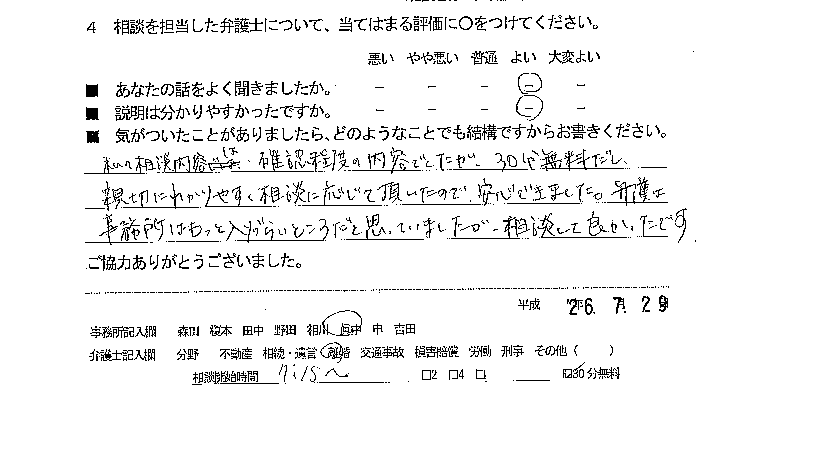 4 相談を担当した弁護士について、当てはまる評価に○をつけてください。
悪い やや悪い 普通 よい 大変よい
■ あなたの話をよく聞きましたか。 － － － － －
■ 説明は分かりやすかったですか。 － － － － －
■ 気がついたことがありましたら、どのようなことでも結構ですからお書きください。
私の相談内容は、確認程度の内容でしたが、30分無料だし、
親切にわかりやすく相談に応じて頂いたので、安心できました。弁護士
事務所はもっと入りづらいところだと思っていましたが、相談して良かったです
ご協力ありがとうございました。
平成 26. 7. 29
事務所記入欄 森田 榎本 田中 野田 相川 田中 申 吉田
弁護士記入欄 分野 不動産 相続・遺言 離婚 交通事故 損害賠償 労働 刑事 その他（ ）
相談開始時間 □2 □4 □ ☑30分無料